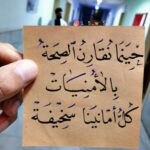 حِينَما نُقارِن الصِحةُ
بِالأُمنِيَات
كُلُّ أمَانينَا سَخِيفَة